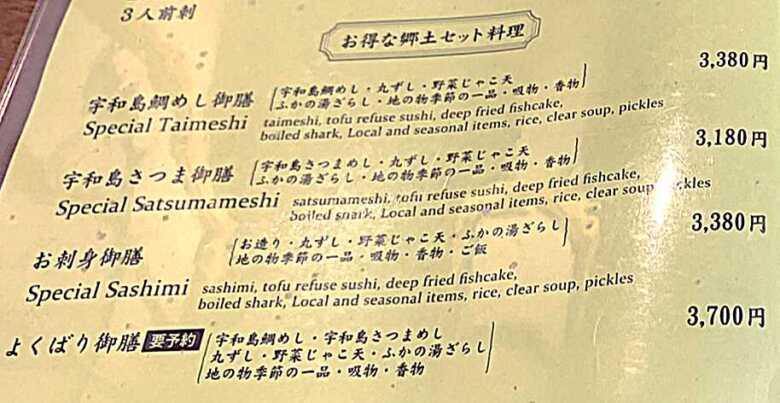 3人前刺
お得な郷土セット料理
3,380円
宇和島鯛めし御膳
宇和島鯛めし・丸ずし・野菜じゃこ天
ふかの湯ざらし・地の物季節の一品・吸物・香物
Special Taimeshi
taimeshi, tofu refuse sushi, deep fried fishcake,
boiled shark, Local and seasonal items, rice, clear soup, pickles
3,180円
宇和島さつま御膳
宇和島さつまめし・丸ずし・野菜じゃこ天
ふかの湯ざらし・地の物季節の一品・吸物・香物
Special Satsumameshi
satsumameshi, tofu refuse sushi, deep fried fishcake,
boiled shark, Local and seasonal items, rice, clear soup, pickles
3,380円
お刺身御膳
お造り・丸ずし・野菜じゃこ天・ふかの湯ざらし
地の物季節の一品・吸物・香物・ご飯
Special Sashimi
sashimi, tofu refuse sushi, deep fried fishcake,
boiled shark, Local and seasonal items, rice, clear soup, pickles
3,700円
よくばり御膳 要予約
宇和島鯛めし・宇和島さつまめし
丸ずし・野菜じゃこ天・ふかの湯ざらし
地の物季節の一品・吸物・香物